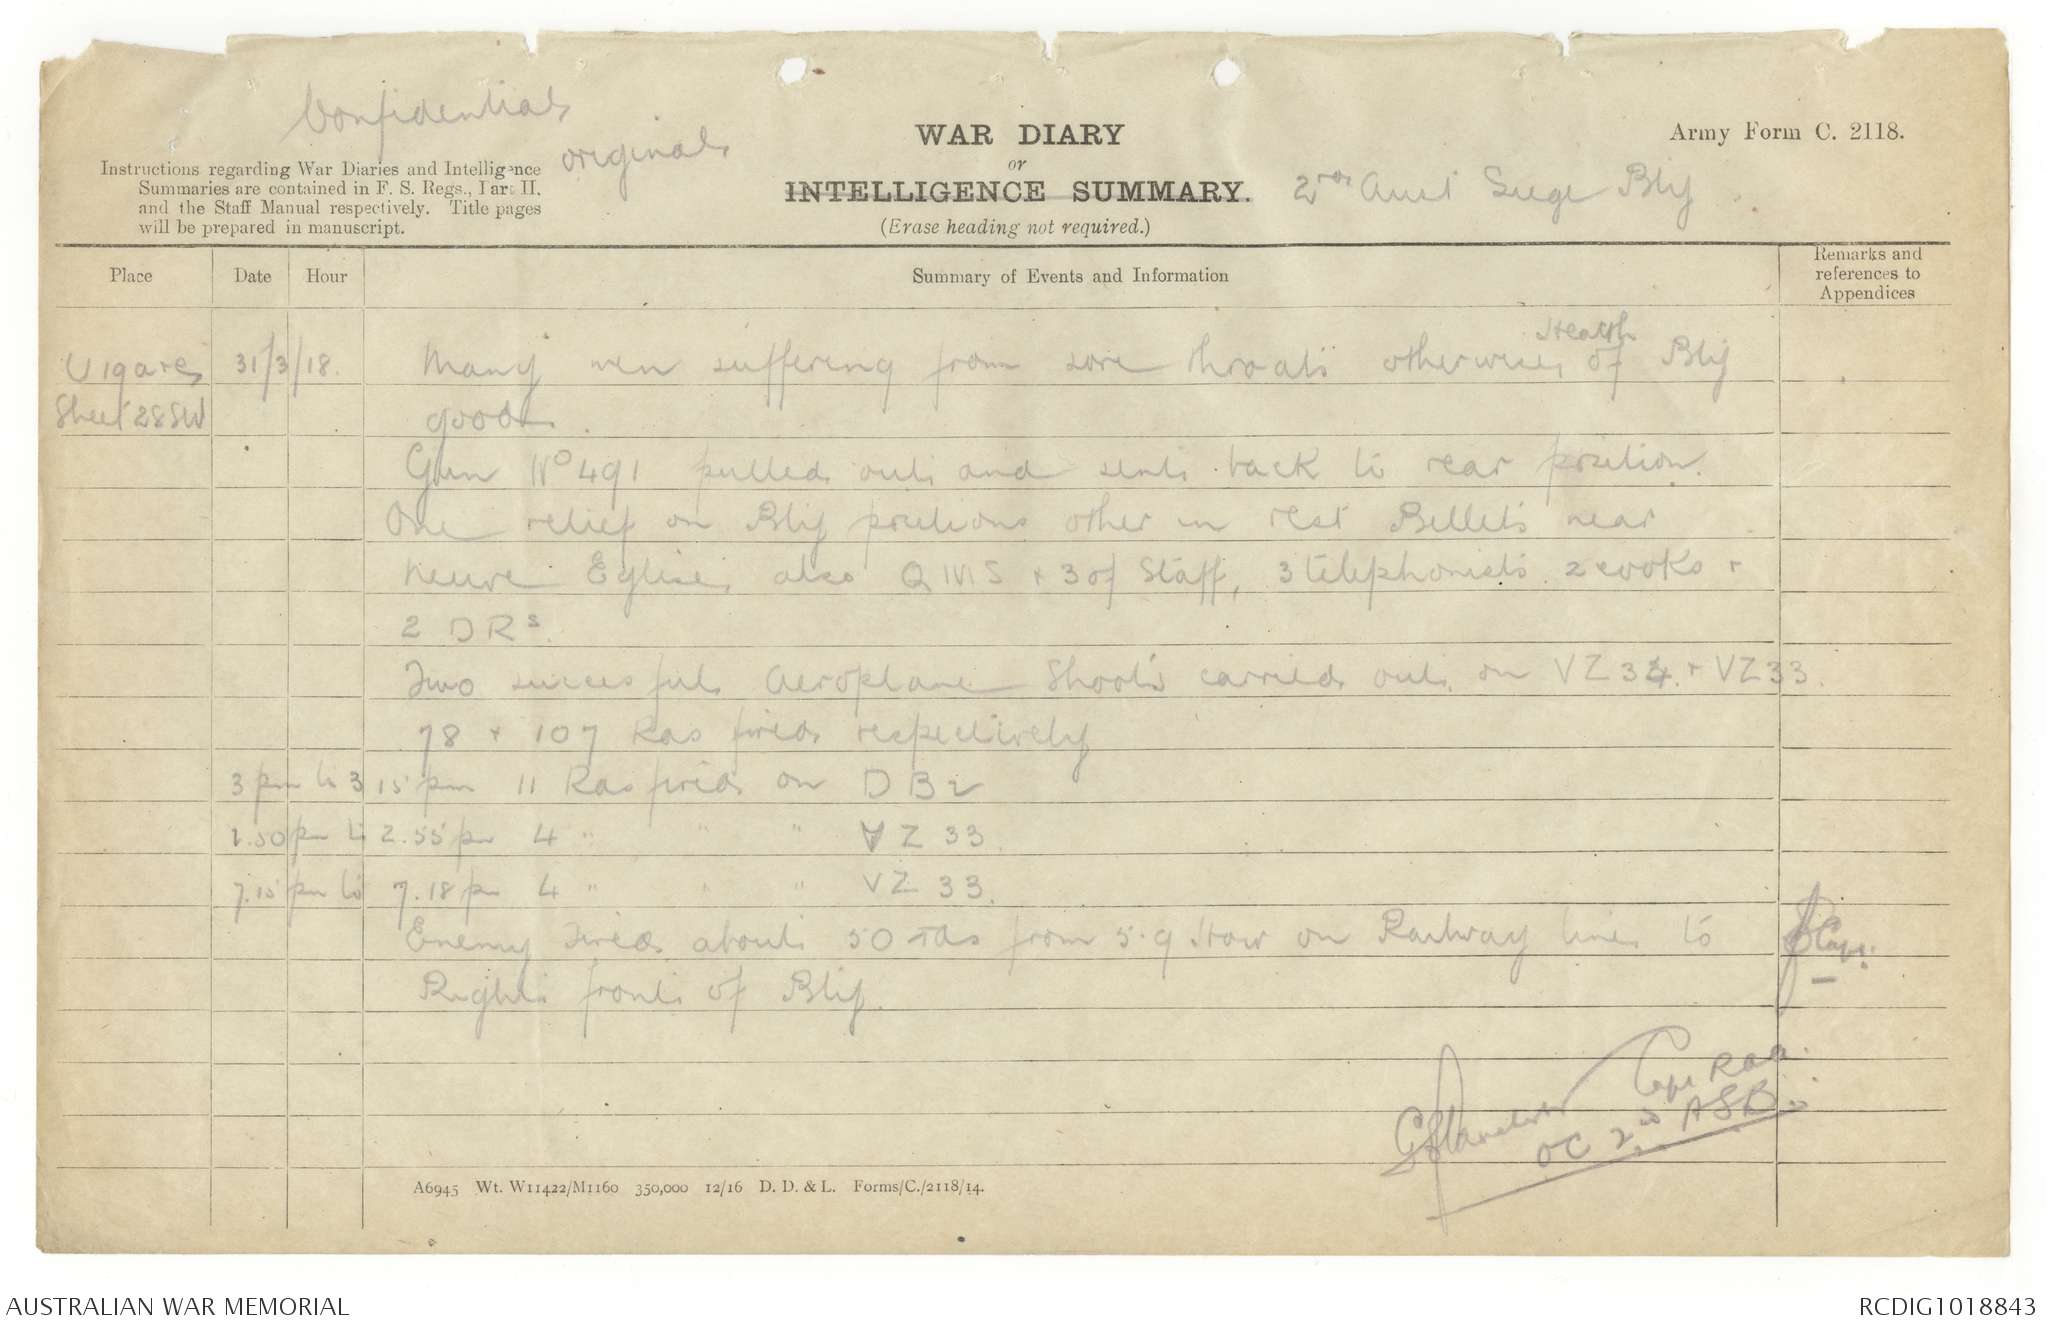 Confidential
original
WAR DIARY
or
INTELLIGENCE SUMMARY.
(Erase heading not required.)
Army Form C. 2118.
2nd Aust Siege Bty
Instructions regarding War Diaries and Intelligence
Summaries are contained in F. S. Regs., Part II.
and the Staff Manual respectively. Title pages
will be prepared in manuscript.
Place Date Hour Summary of Events and Information Remarks and references to Appendices
31/3/18. Many men suffering from sore throats otherwise Health of Bty
Sheet 28SW good.
Gun No 491 pulled out and sent back to rear position.
One relief on Bty positions other in rest Billets near
Neuve Eglise, also QMS + 3 of Staff, 3 telephonists 2 cooks +
2 DRs.
Two successful Aeroplane Shoots carried out on VZ 34 + VZ33.
78 + 107 Rds fired respectively
3 pm to 3 15 pm 11 Rds fired on DB2
2.50 pm to 2.55 pm 4 " " " VZ 33.
7.15 pm to 7.18 pm 4 " " " VZ 33.
Enemy Fired about 50 rds from 5.9 How on Railway line to
Right front of Bty.
Capt.
Capt RAA.
OC 2nd ASB.
A6945 Wt. W11422/M1160 350,000 12/16 D. D. & L. Forms/C./2118/14.
AUSTRALIAN WAR MEMORIAL
RCDIG1018843